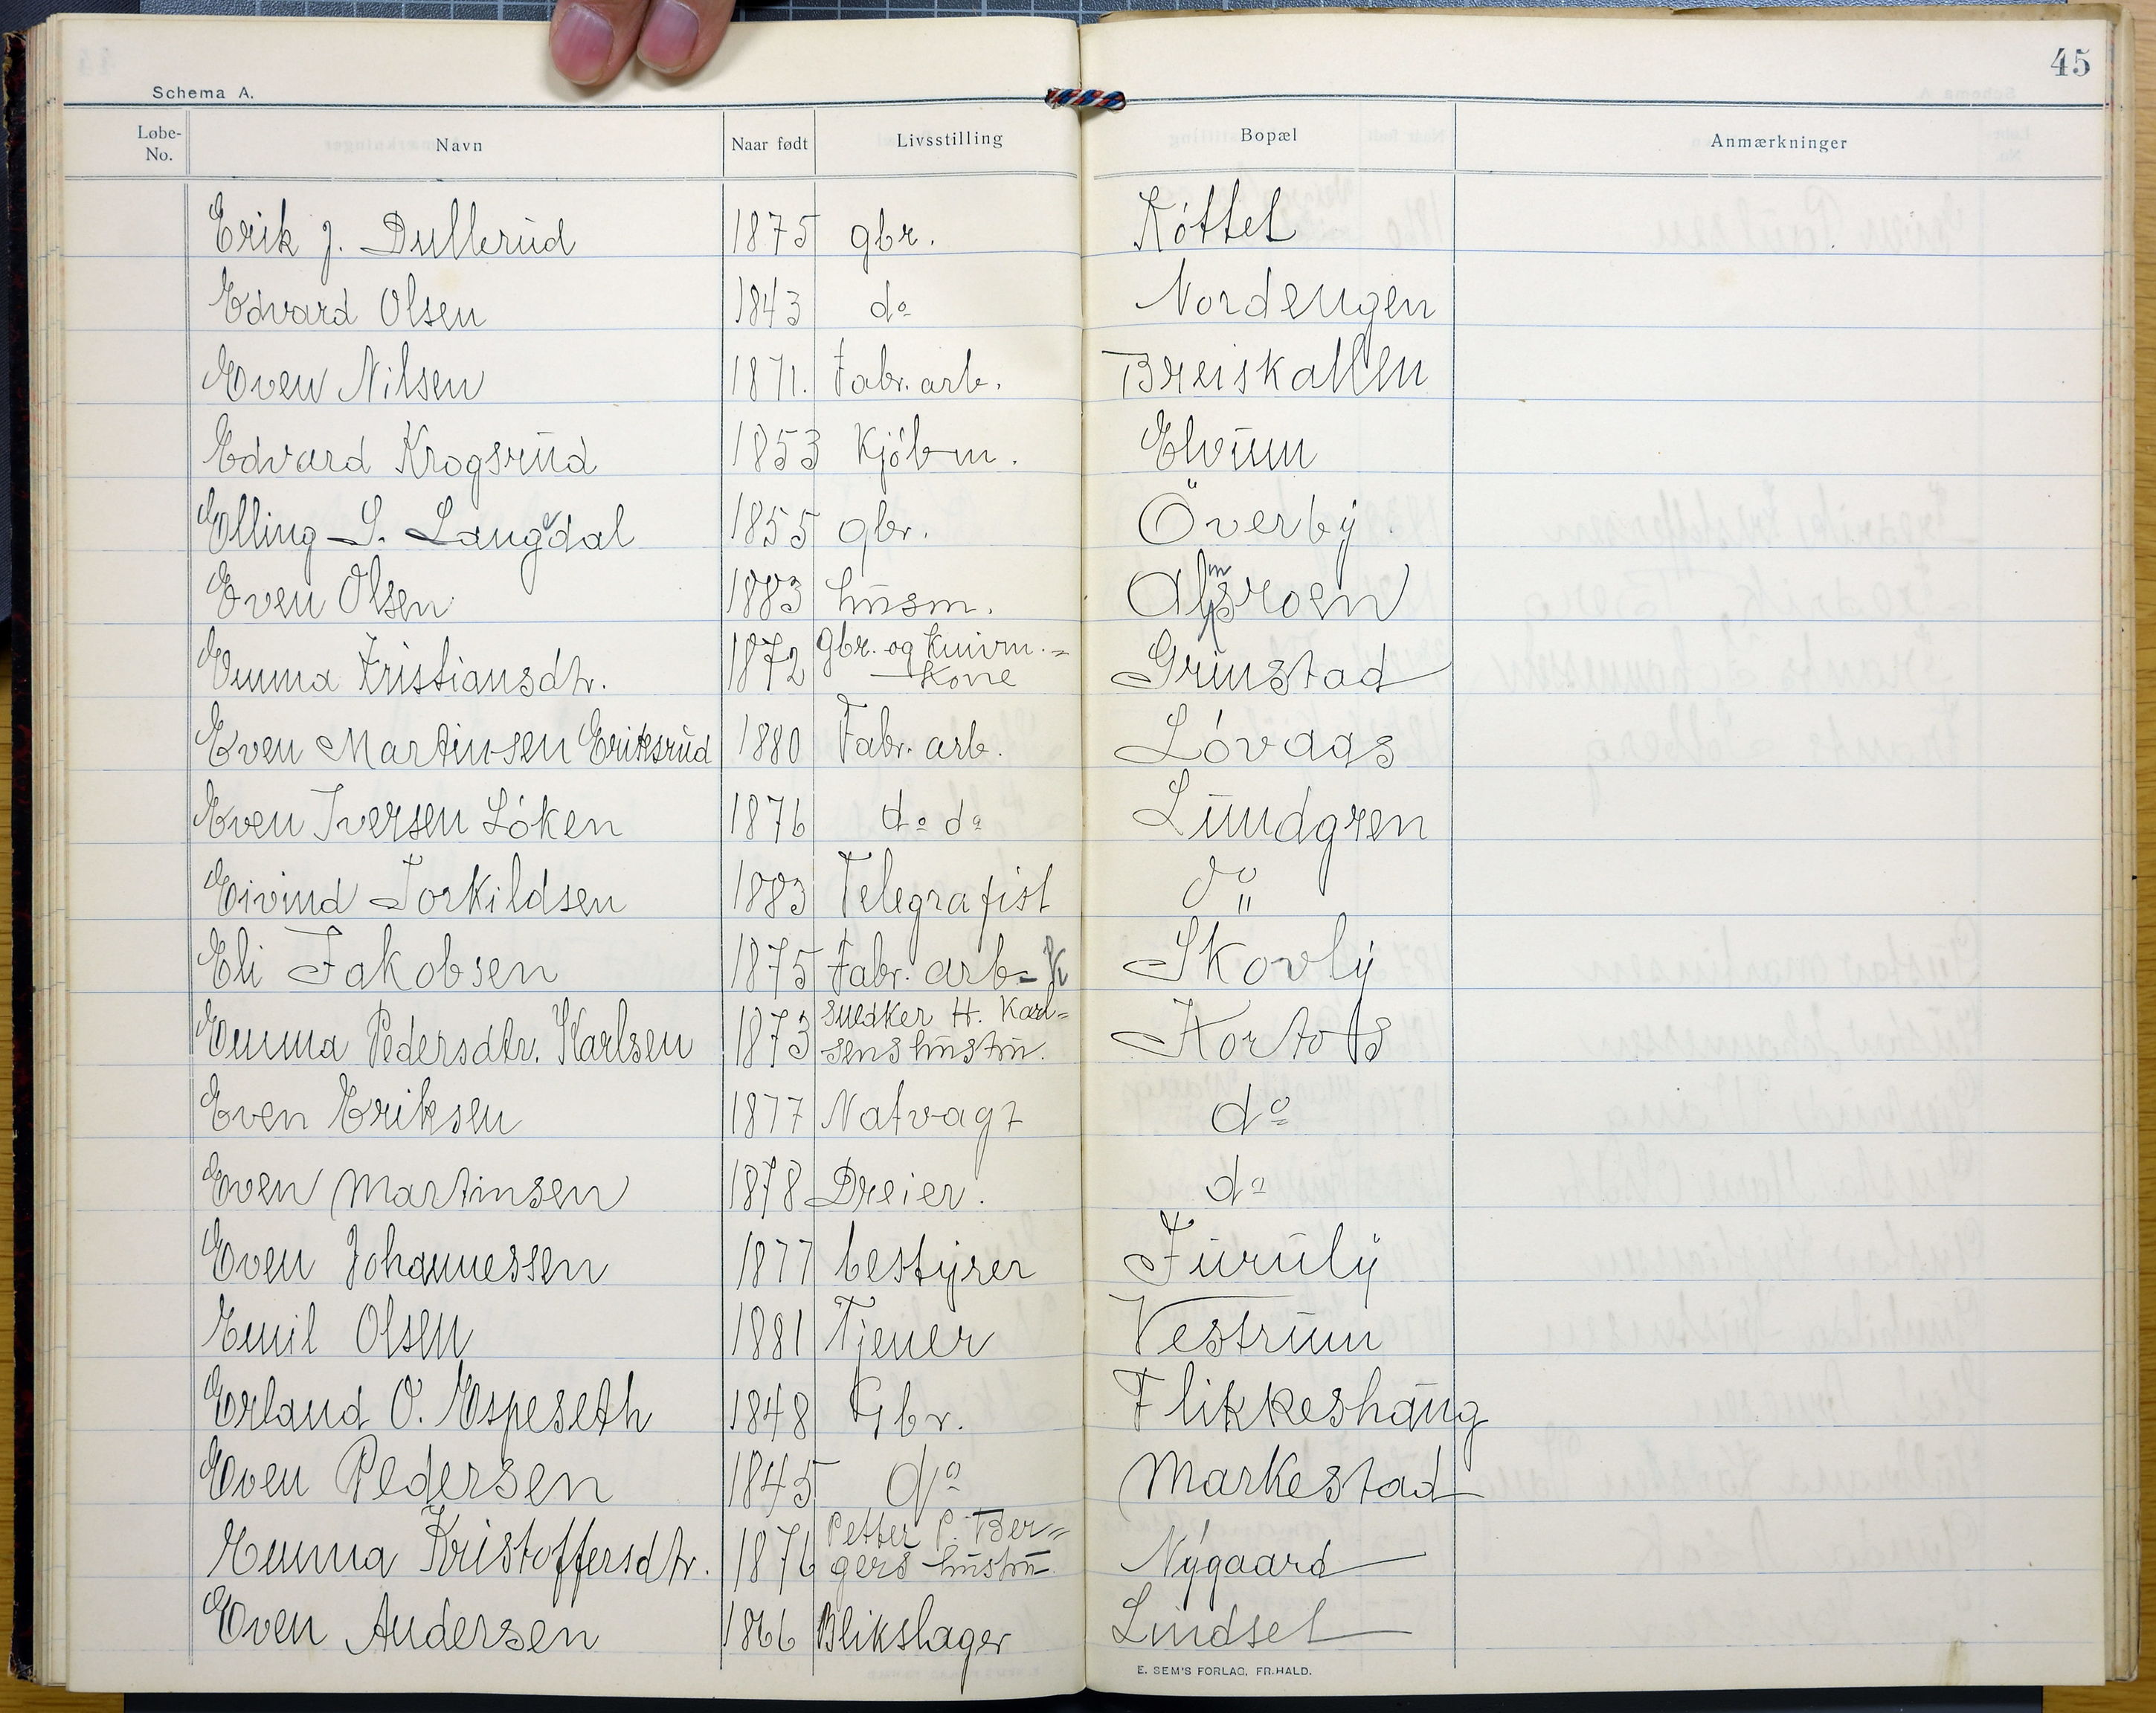 45
Schema A.
Løbe-No. Navn Naar født Livsstilling Bopæl Anmærkninger
Erik J. Dullerud 1875 gbr. Kóttel
Edvard Olsen 1843 do Nordengen
Even Nilsen 1871. Fabr. arb. Breiskallen
Edvard Krogsrud 1853 Kjóbm. Elvum
Elling S. Langdal 1855 gbr. Överby
Even Olsen 1883 husm.
Emma Kristiansdtr. 1872 Gbr. og Kone Grinstad
Even Martinsen Eriksrud 1880 Fabr. arb. Lóvaas
Even Iversen Lóken 1876 do do Lundgren
Eivind Torkildsen 1883 Telegrafist do "
Eli Jakobsen 1875 Fabr. arb- K Skovly
Emma Pedersdtr. Karlsen 1873 snedker H. Karl=
sens hustru. Kortots
Even Eriksen 1877 Natvagt do
Even Martinsen 1878 Dreier. do
Even Johannessen 1877 bestyrer Furuly
Emil Olsen 1881 Tjener Vestrum
Erland O. Espeseth 1848 Gbr. Flikkeshaug
Even Pedersen 1845 do Markestad
Emma Kristoffersdtr. 1876 Petter P. Ber=
gers hustru Nygaard
Even Andersen 1866 Blikslager Lindsel
E. SEM'S FORLAG, FR.HALD.